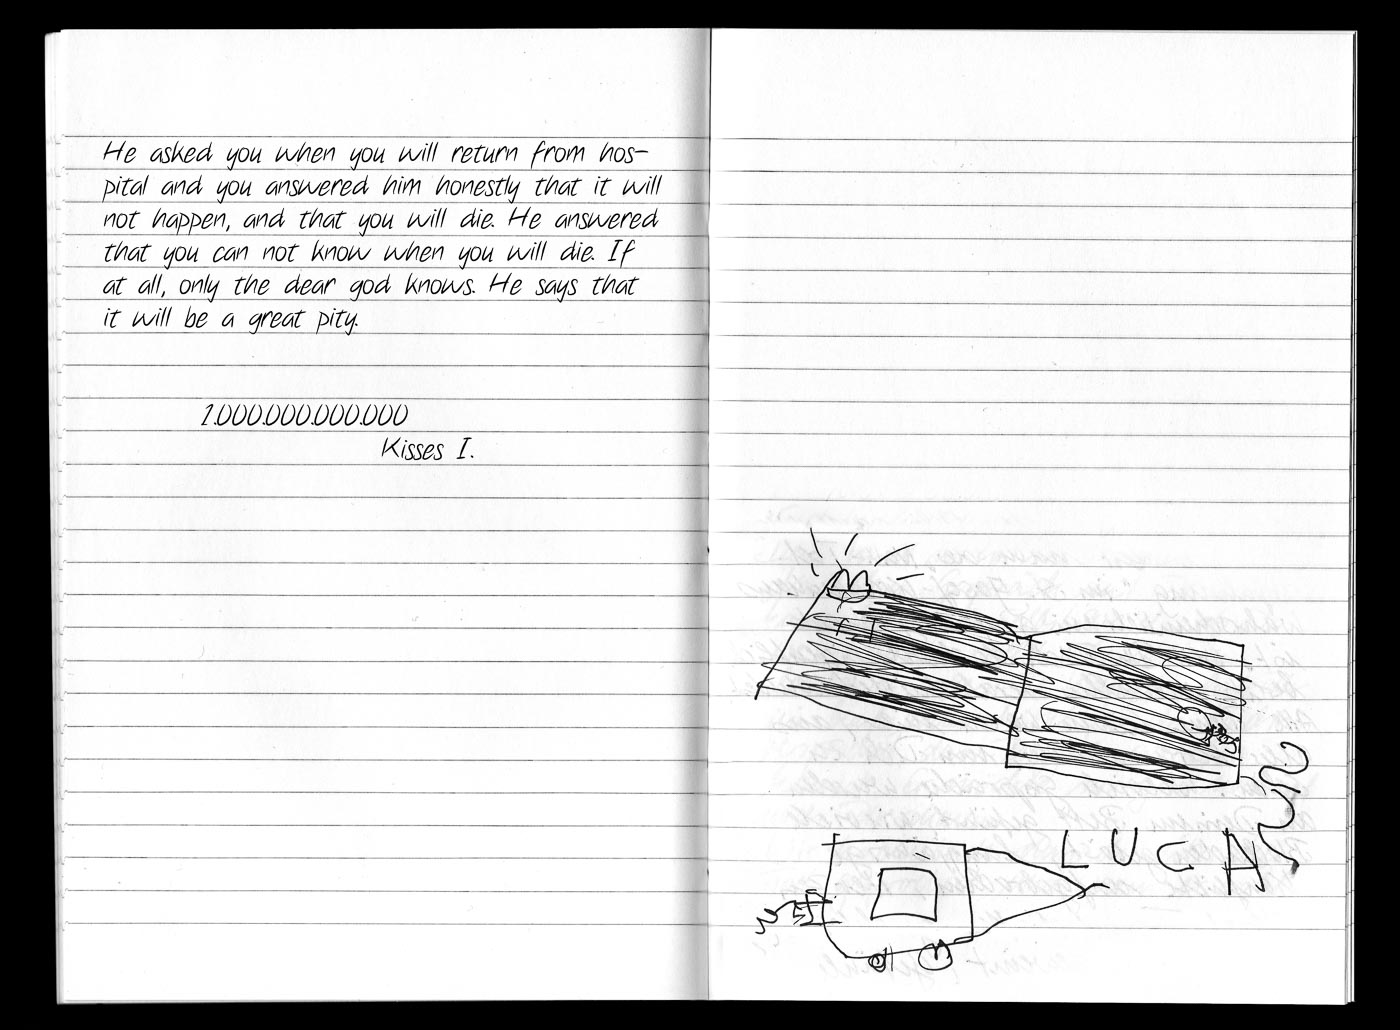 He asked you when you will return from hos-
pital and you answered him honestly that it will
not happen, and that you will die. He answered
that you can not know when you will die. If
at all, only the dear god knows. He says that
it will be a great pity.
1.000.000.000.000
Kisses I.
LUCA